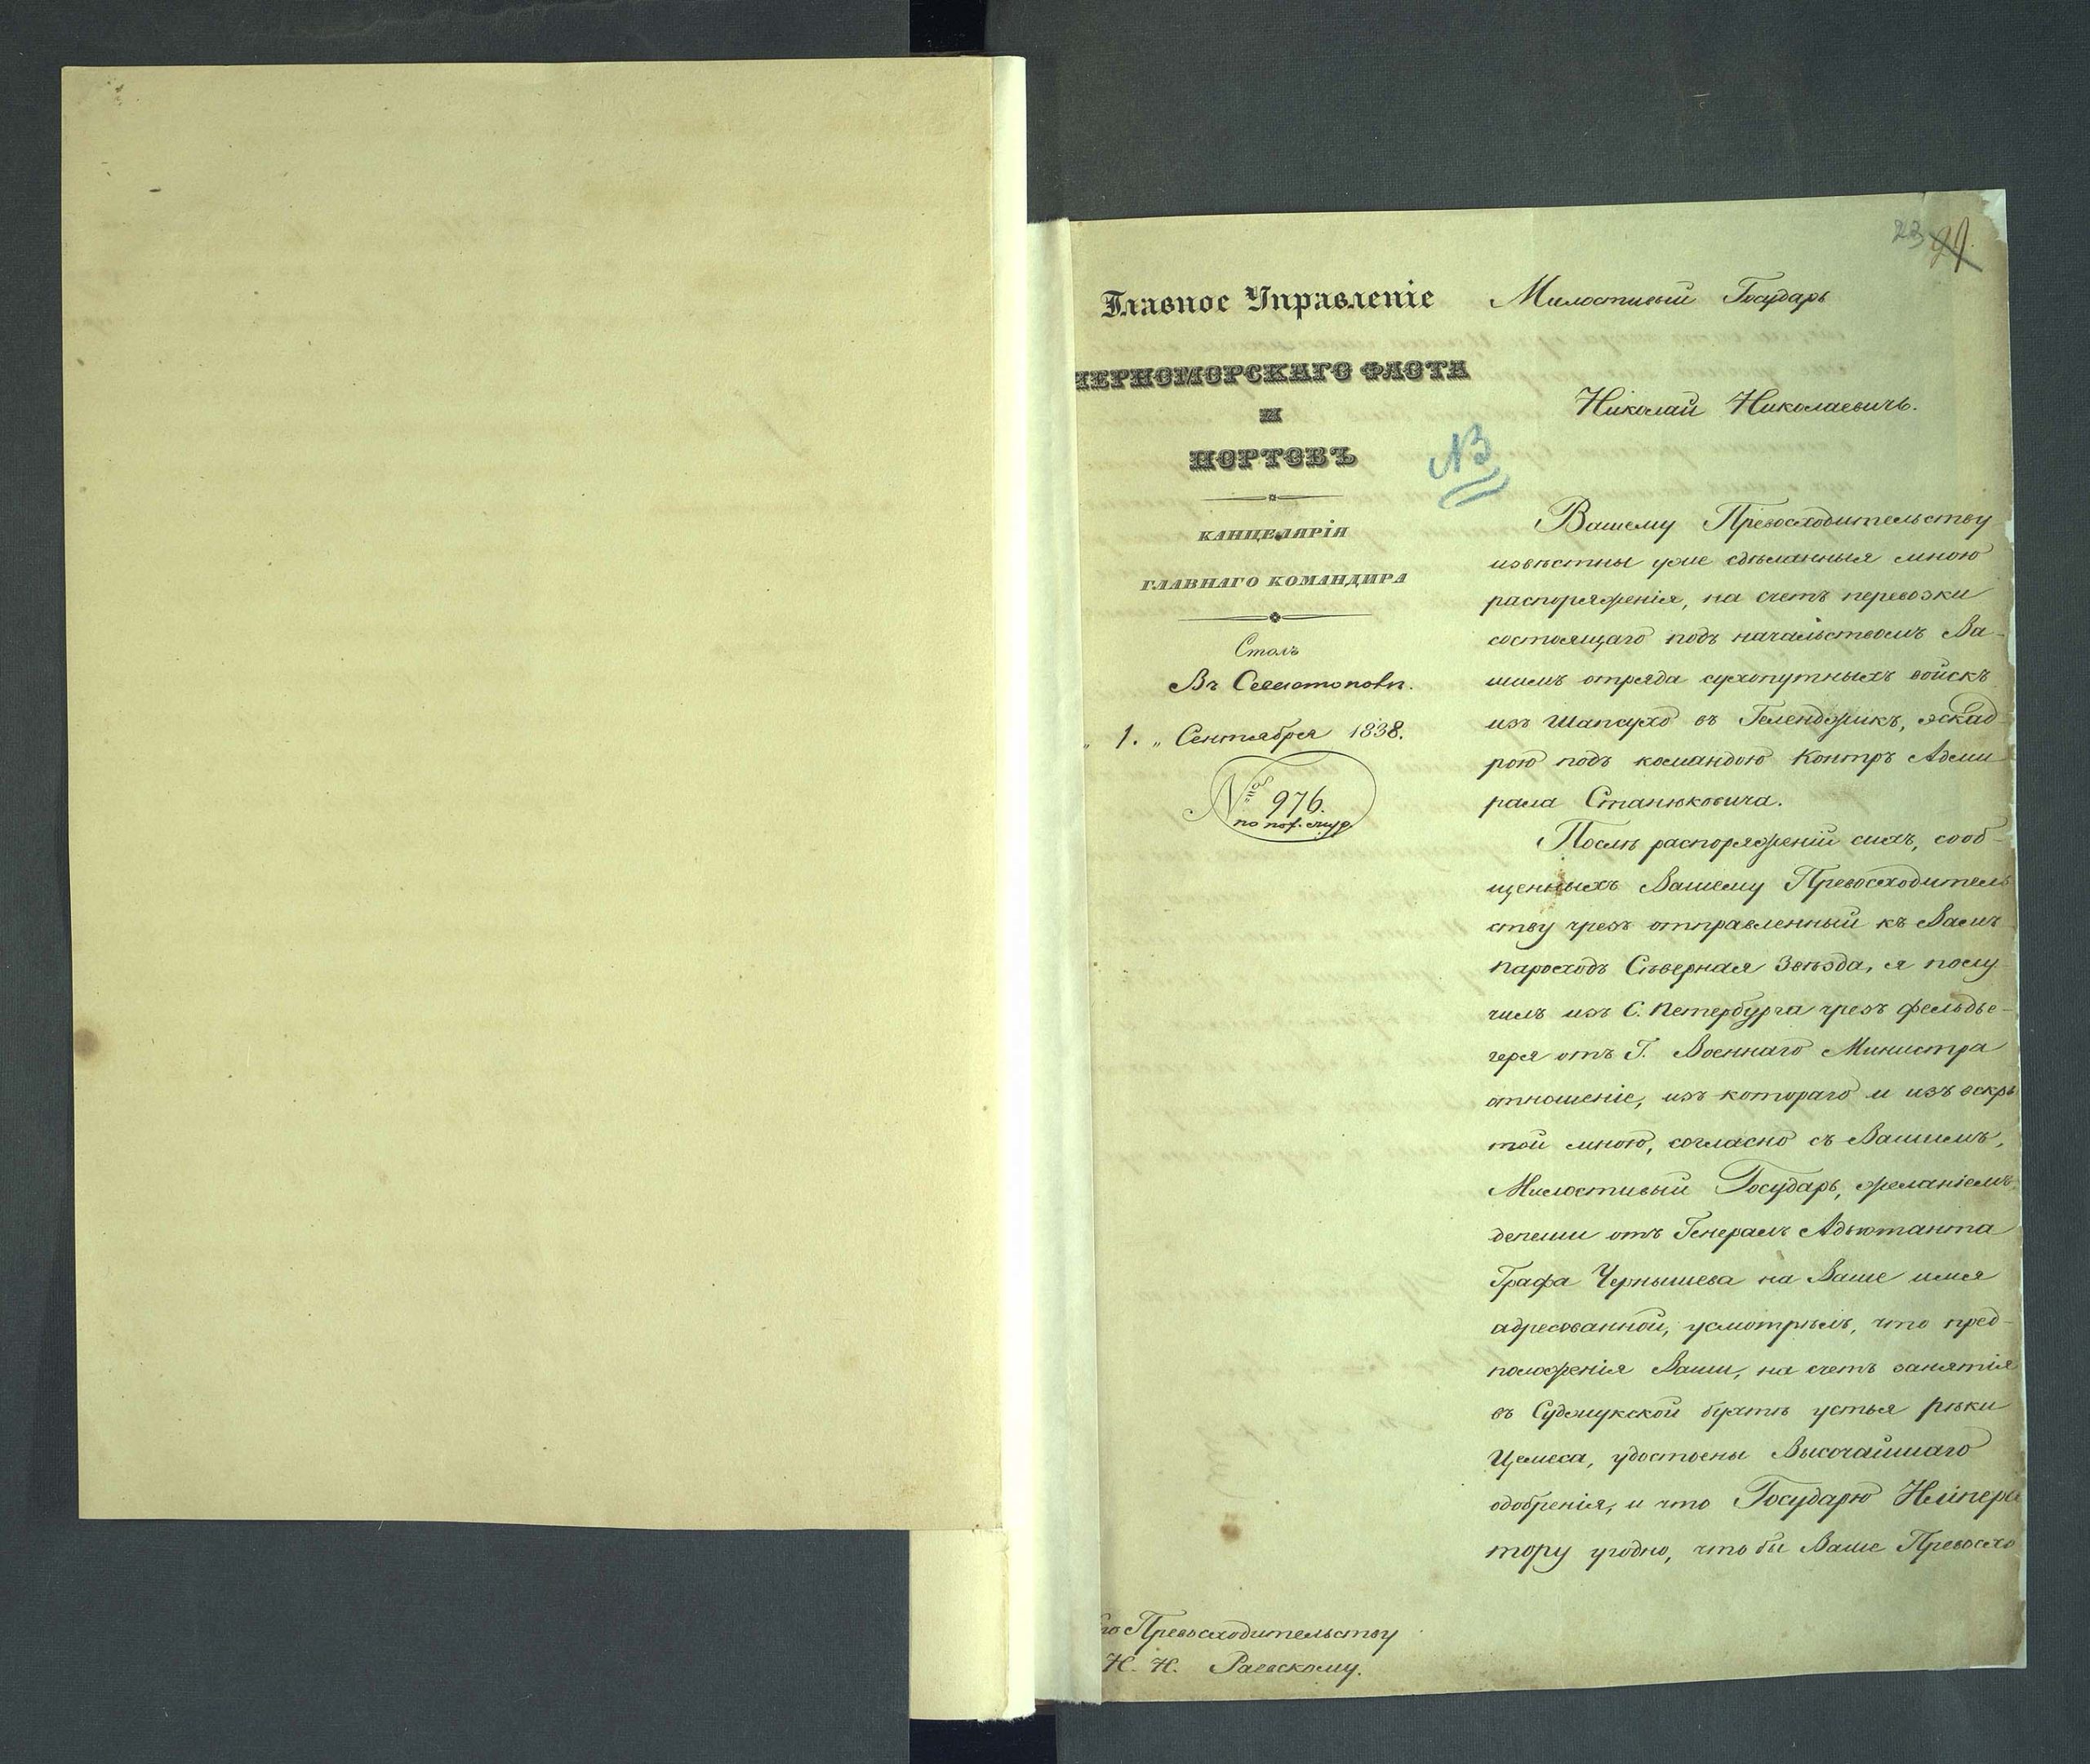 23 99.
Главное Управленіе
ЧЕРНОМОРСКАГО ФЛОТА
И
ПОРТОВЪ
КАНЦЕЛЯРІЯ
ГЛАВНАГО КОМАНДИРА
Столъ
Въ Севастополѣ.
„ 1. „ Сентября 1838.
№ 976.
по пох. журн.
NB
Милостивый Государь
Николай Николаевичь.
Вашему Превосходительству
извѣстны уже сдѣланныя мною
распоряженія, на счетъ перевозки
состоящаго подъ начальствомъ Ва-
шимъ отряда сухопутныхъ войскъ
изъ Шапсухо въ Геленджикъ, эскад-
рою подъ командою Контръ Адми
рала Станюковича.
Послѣ распоряженій сихъ, сооб-
щенныхъ Вашему Превосходитель
ству чрезъ отправленный къ Вамъ
пароходъ Сѣверная Звѣзда, я полу-
чилъ изъ С. Петербурга чрезъ фельдъе-
геря отъ Г. Военнаго Министра
отношеніе, изъ котораго и изъ вскры
той мною, согласно съ Вашимъ,
Милостивый Государь, желаніемъ
депеши отъ Генералъ Адъютанта
Графа Чернышева на Ваше имя
адресованной, усмотрѣлъ, что пред-
положенія Ваши, на счетъ занятія
въ Суджукской бухтѣ устья рѣки
Цемеса, удостоены Высочайшаго
одобренія, и что Государю Импера
тору угодно, что бы Ваше Превосхо
Его Превосходительству
Н. Н. Раевскому.